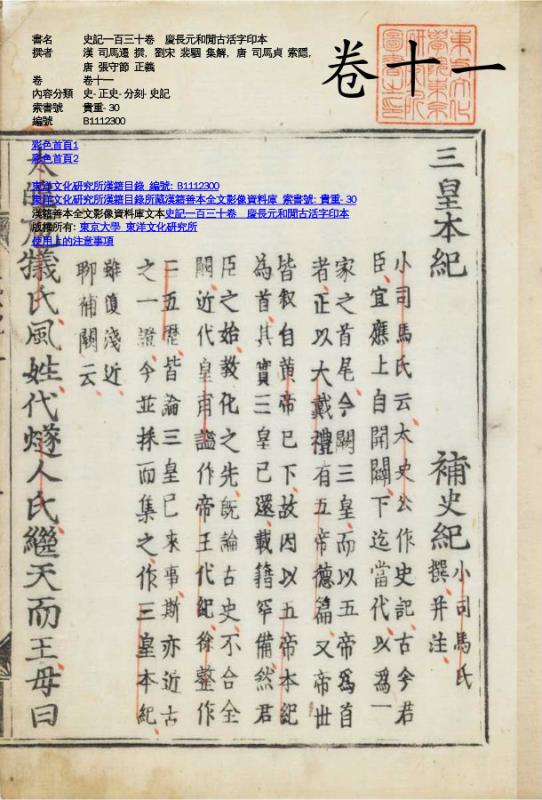 書名 史記一百三十卷 慶長元和閒古活字印本
撰者 漢 司馬遷 撰, 劉宋 裴駰 集解, 唐 司馬貞 索隱,
唐 張守節 正義
卷 卷十一
內容分類 史- 正史- 分刻- 史記
索書號 貴重- 30
編號 B1112300
卷十一
彩色首頁1
彩色首頁2
東洋文化研究所漢籍目錄 編號: B1112300
東洋文化研究所漢籍目錄所藏漢籍善本全文影像資料庫 索書號: 貴重- 30
漢籍善本全文影像資料庫文本史記一百三十卷 慶長元和閒古活字印本
版權所有: 東京大學 東洋文化研究所
使用上的注意事項
三皇本紀 補史紀 小司馬氏
撰并注
小司馬氏云太史公作史記古今君
臣宜應上自開闢下迄當代以為一
家之首尾今闕三皇而以五帝為首
者正以大戴禮有五帝德篇又帝世
皆敘自黃帝已下故因以五帝本紀
為首其實三皇已還載籍罕備然君
臣之始教化之先旣論古史不合全
闕近代皇甫謐作帝王代紀徐整作
三五曆皆論三皇已來事斯亦近古
之一證今並採而集之作三皇本紀
雖復淺近
聊補闕云
犧氏風姓代燧人氏繼天而王母曰